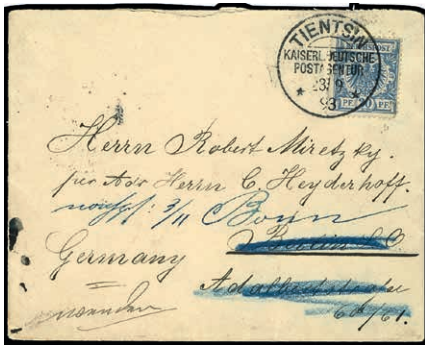 TIENTSIN
KAISERL. DEUTSCHE
POSTAGENTUR
23/9
93
PF. 20 PF.
Herrn Robert Miretzky.
per Adr Herrn C. Heyderhoff.
3/11 Bonn
Berlin S.O.
Germany
Adalbertstrasse
60/61.